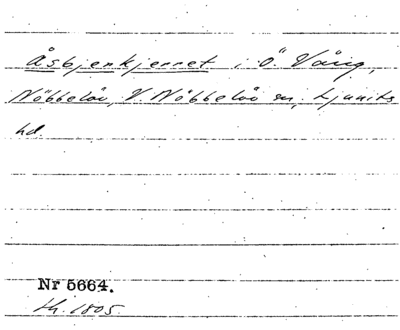 Åsbjenkjerret i Ö. Väng,
Nöbbelöv, V. Nöbbelöv sn, Ljunits
hd
Nr 5664.
th. 1805.